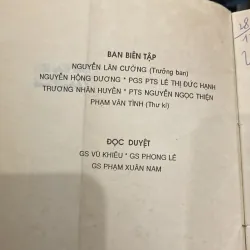 BAN BIÊN TẬP
NGUYỄN LÂN CƯỜNG (Trưởng ban)
NGUYỄN HỒNG DƯƠNG * PGS PTS LÊ THỊ ĐỨC HẠNH
TRƯƠNG NHÂN HUYỀN * PTS NGUYỄN NGỌC THIỆN
PHẠM VĂN TÌNH (Thư kí)
ĐỌC DUYỆT
GS VŨ KHIÊU * GS PHONG LÊ
GS PHẠM XUÂN NAM